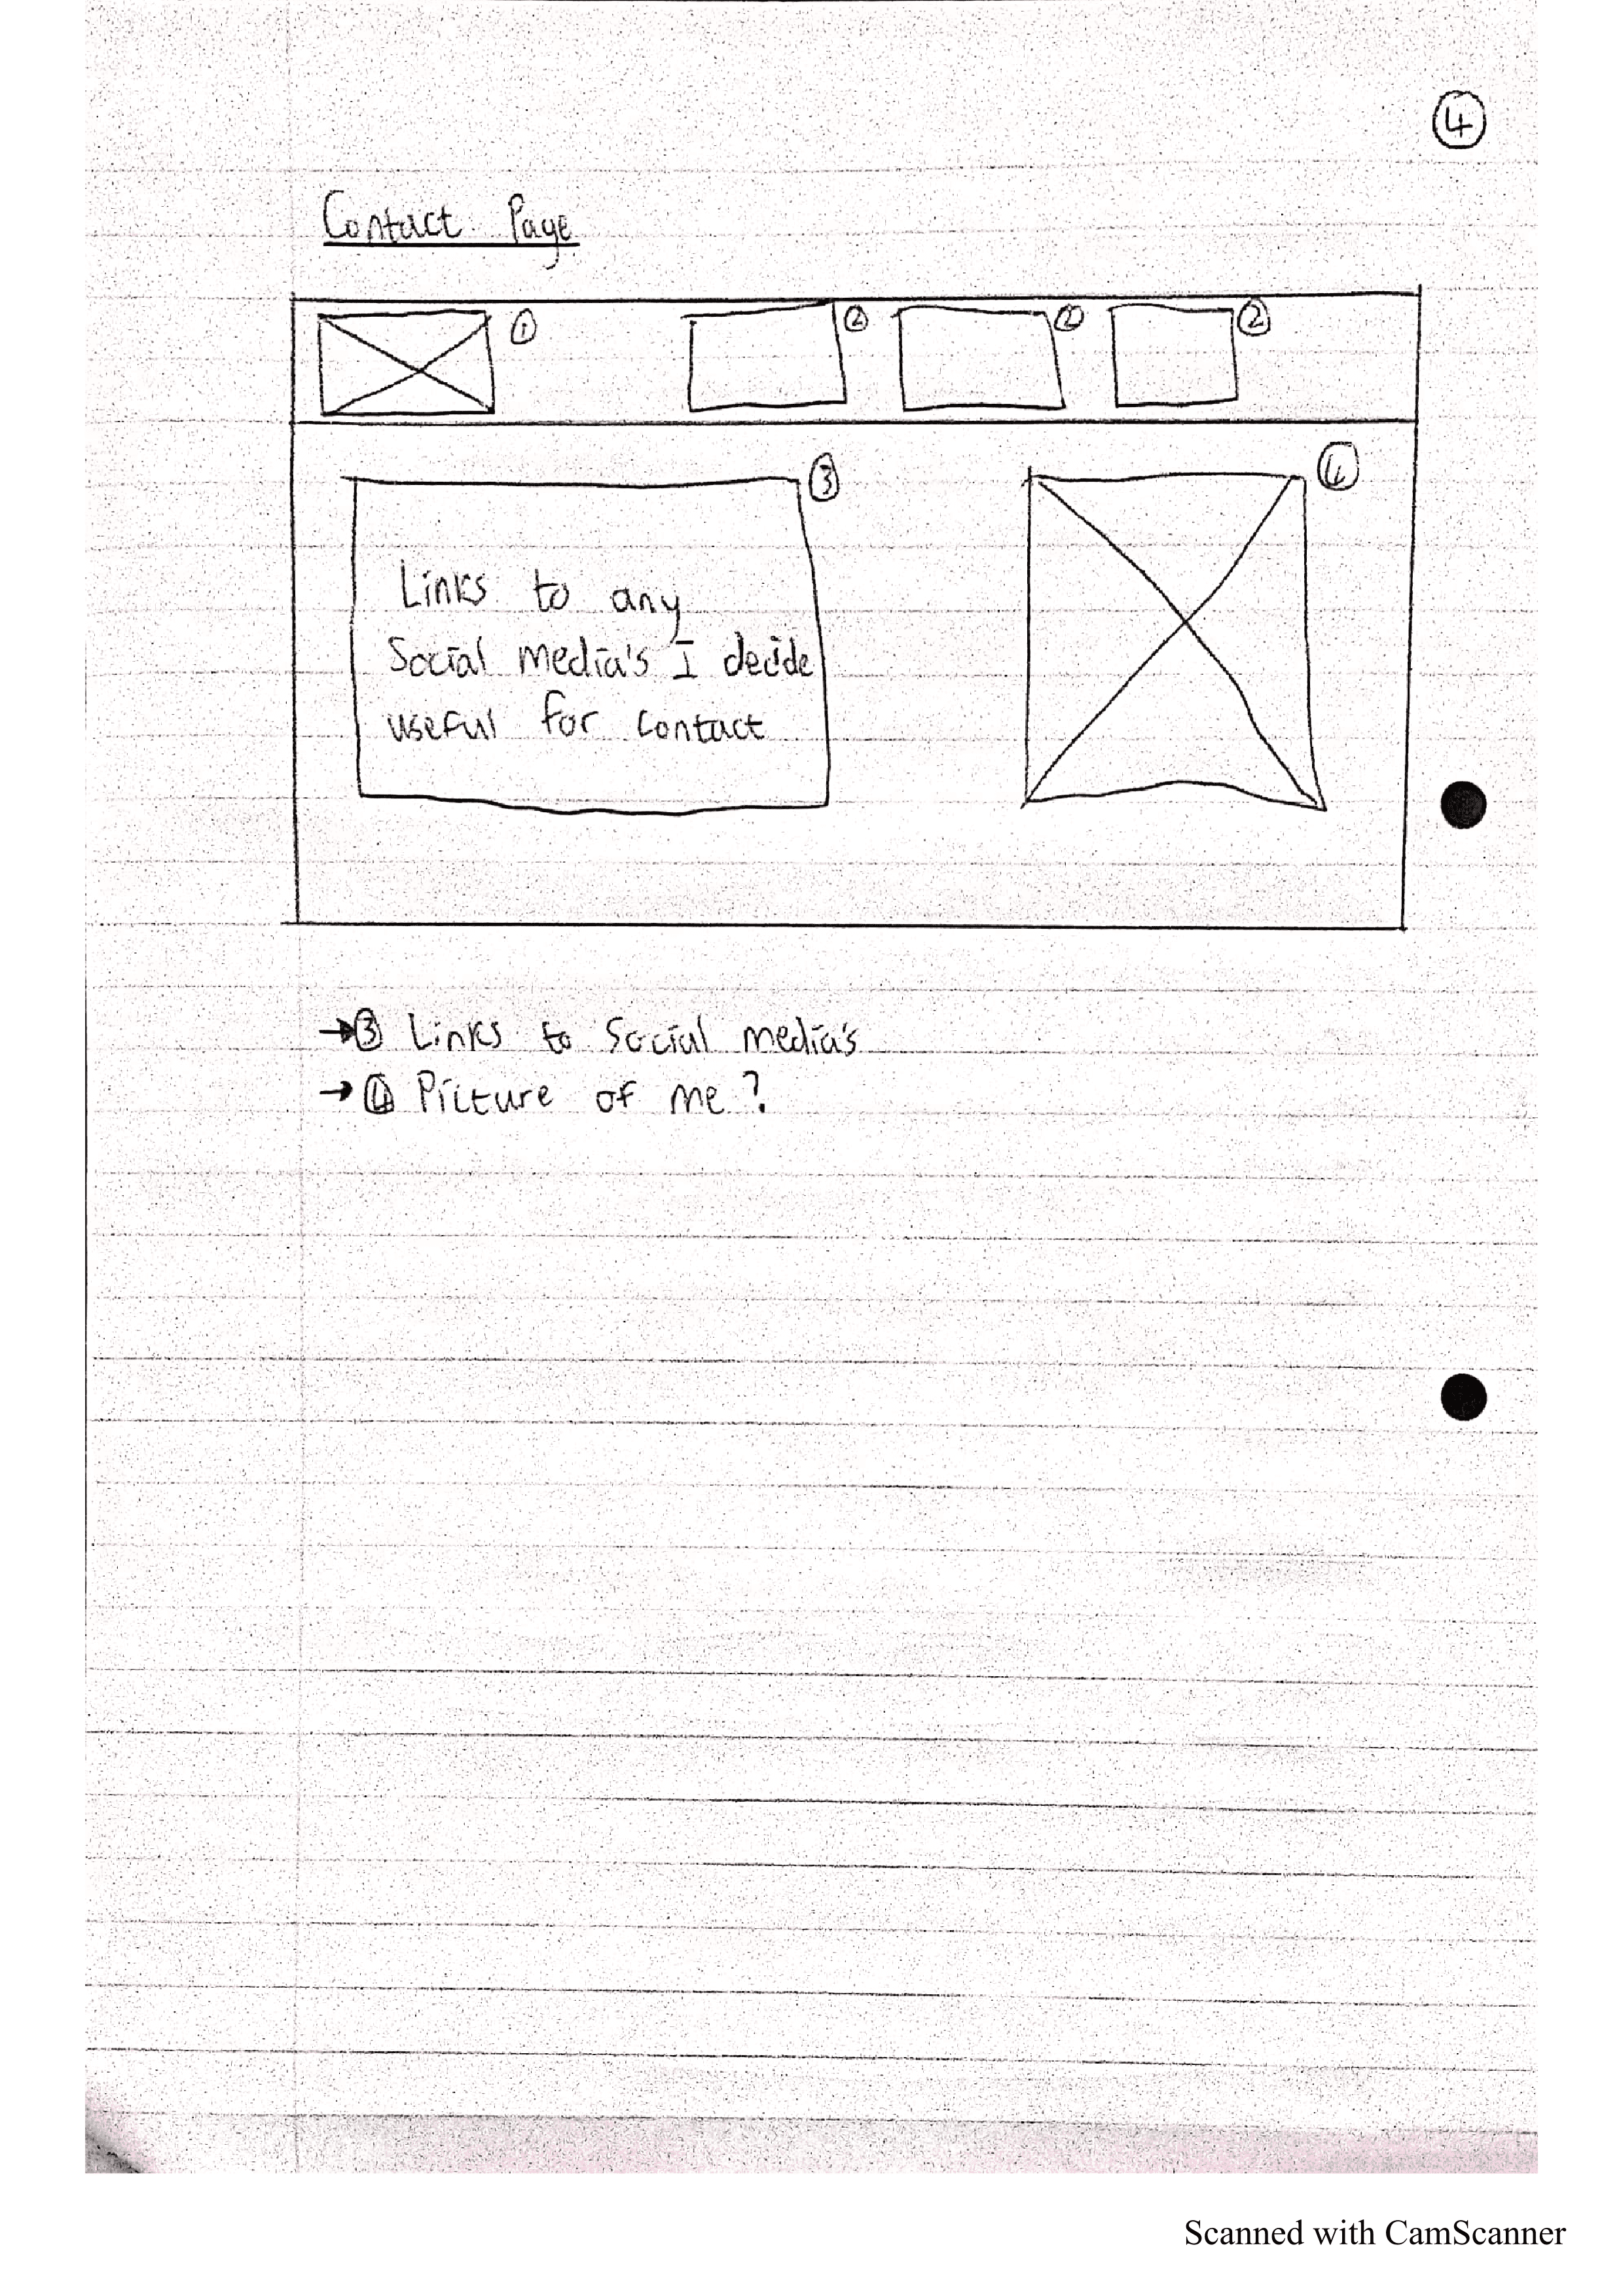 ④
Contact Page
① ② ② ②
③ ④
Links to any
Social media's I decide
useful for contact
→③ Links to Social media's
→④ Picture of me?
Scanned with CamScanner